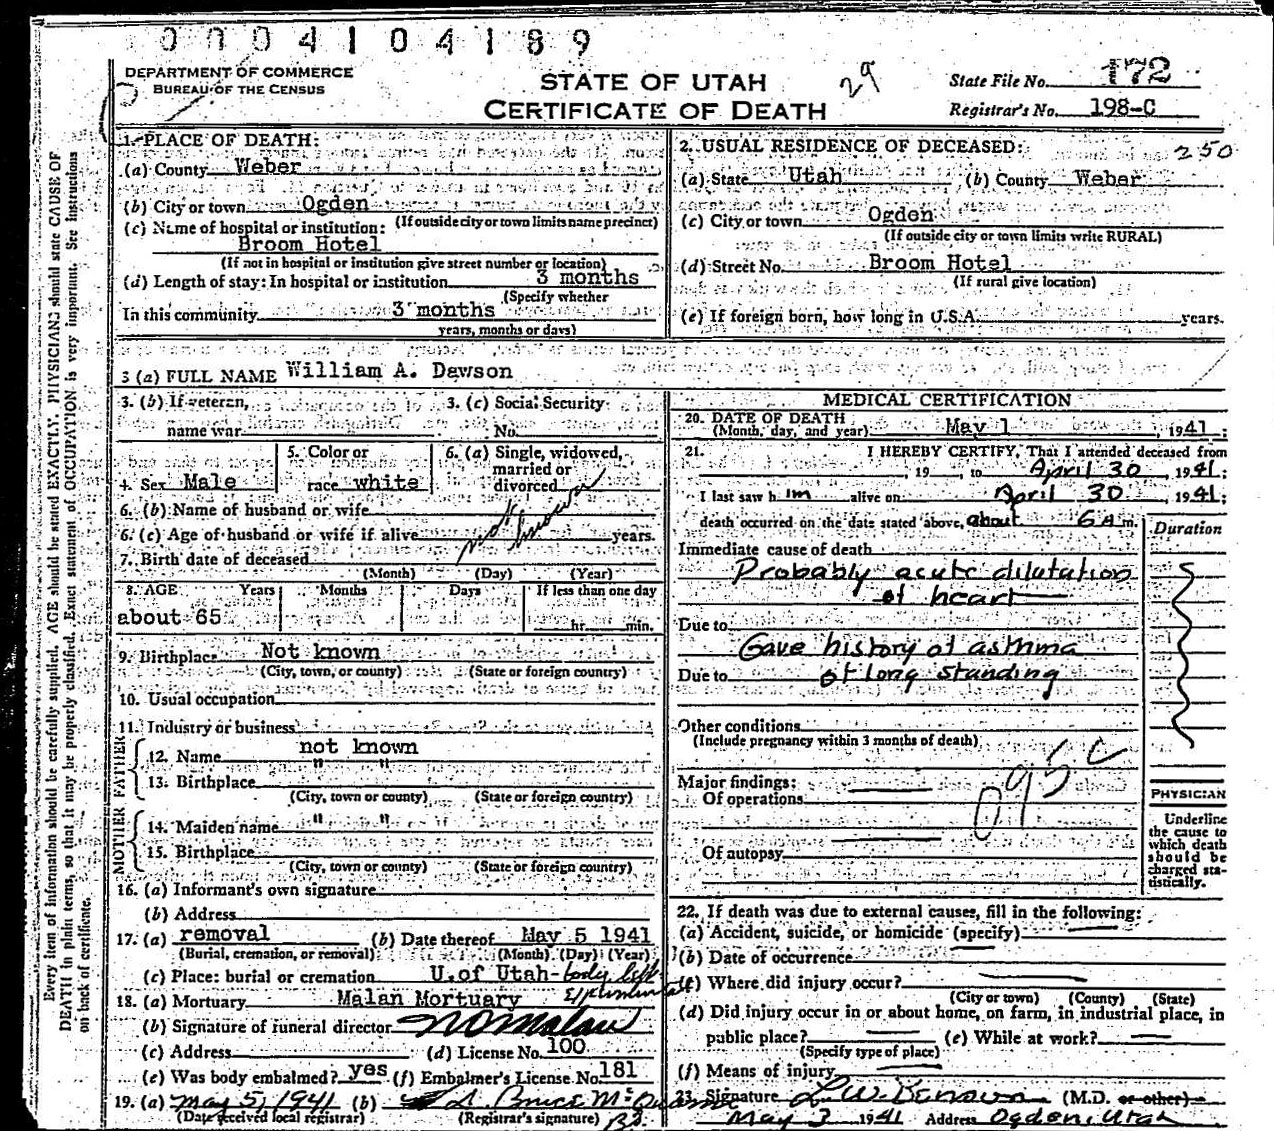 0004104189
DEPARTMENT OF COMMERCE
BUREAU OF THE CENSUS
STATE OF UTAH
CERTIFICATE OF DEATH
29
State File No. 172
Registrar's No. 198-C
Every item of information should be carefully supplied. AGE should be stated EXACTLY. PHYSICIANS should state CAUSE OF
DEATH in plain terms, so that it may be properly classified. Exact statement of OCCUPATION is very important. See instructions
on back of certificate.
1. PLACE OF DEATH:
(a) County Weber
(b) City or town Ogden
(If outside city or town limits name precinct)
(c) Name of hospital or institution:
Broom Hotel
(If not in hospital or institution give street number or location)
(d) Length of stay: In hospital or institution 3 months
(Specify whether
In this community 3 months
years, months or days)
2. USUAL RESIDENCE OF DECEASED: 250
(a) State Utah (b) County Weber
(c) City or town Ogden
(If outside city or town limits write RURAL)
(d) Street No. Broom Hotel
(If rural give location)
(e) If foreign born, how long in U.S.A. years.
3 (a) FULL NAME William A. Dawson
3. (b) If veteran, name war
3. (c) Social Security No.
4. Sex Male
5. Color or race white
6. (a) Single, widowed, married or divorced
6. (b) Name of husband or wife
not known
6. (c) Age of husband or wife if alive years.
7. Birth date of deceased
(Month) (Day) (Year)
8. AGE Years Months Days If less than one day
about 65 hr. min.
9. Birthplace Not known
(City, town, or county) (State or foreign country)
10. Usual occupation
11. Industry or business
FATHER
12. Name not known
13. Birthplace " "
(City, town or county) (State or foreign country)
MOTHER
14. Maiden name " "
15. Birthplace
(City, town or county) (State or foreign country)
16. (a) Informant's own signature
(b) Address
17. (a) removal (b) Date thereof May 5 1941
(Burial, cremation, or removal) (Month) (Day) (Year)
(c) Place: burial or cremation U.of Utah-body
18. (a) Mortuary Malan Mortuary
(b) Signature of funeral director
(c) Address (d) License No. 100
(e) Was body embalmed? yes (f) Embalmer's License No. 181
19. (a) May 5, 1941 (b)
(Date received local registrar) (Registrar's signature)
MEDICAL CERTIFICATION
20. DATE OF DEATH
(Month, day, and year) May 1, 1941;
21. I HEREBY CERTIFY, That I attended deceased from
, 19 , to April 30, 1941;
I last saw him alive on April 30, 1941;
death occurred on the date stated above, about 6 A m.
Duration
Immediate cause of death
Probably acute dilutation
of heart
Due to
Gave history of asthma
Due to of long standing
Other conditions
(Include pregnancy within 3 months of death)
095 c
Major findings:
Of operations
Of autopsy
PHYSICIAN
Underline
the cause to
which death
should be
charged sta-
tistically.
22. If death was due to external causes, fill in the following:
(a) Accident, suicide, or homicide (specify)
(b) Date of occurrence
(c) Where did injury occur?
(City or town) (County) (State)
(d) Did injury occur in or about home, on farm, in industrial place, in
public place? (e) While at work?
(Specify type of place)
(f) Means of injury
23. Signature (M.D. or other)
May 3 1941 Address Ogden, Utah